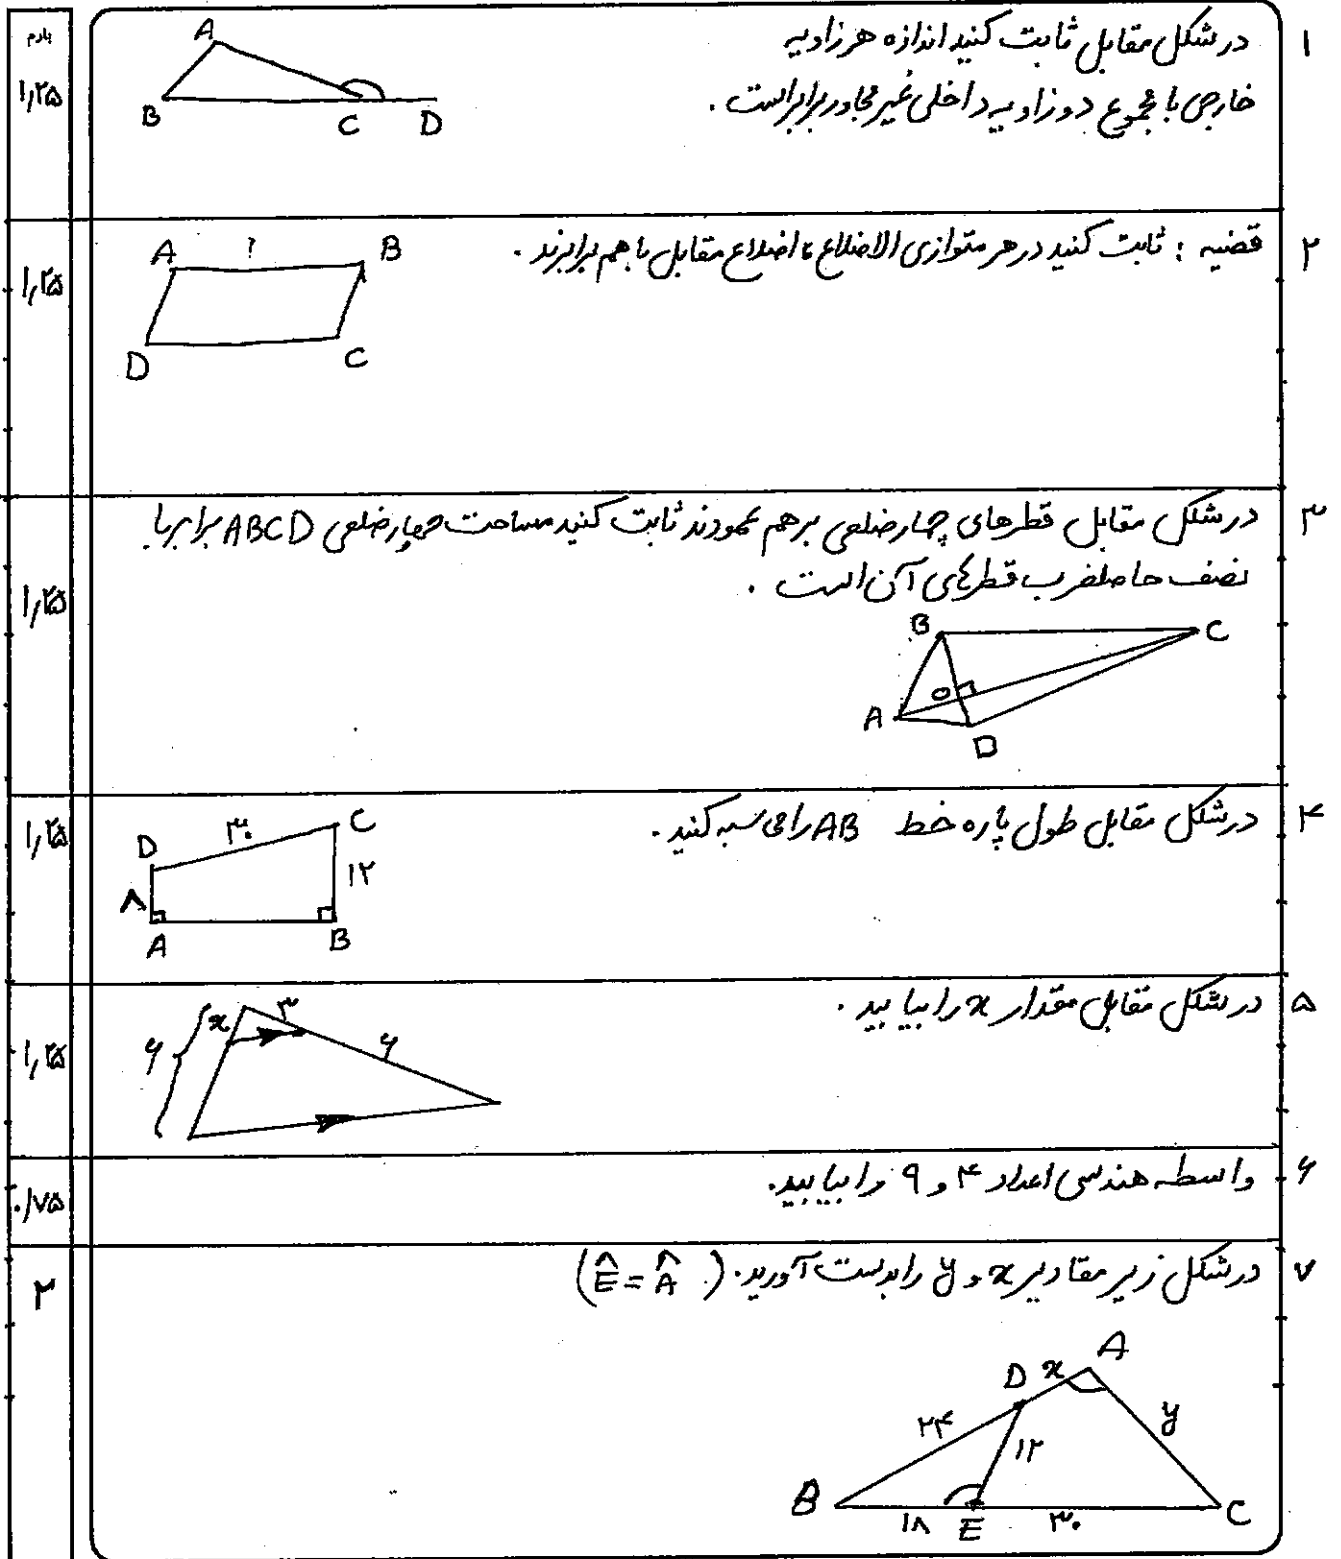 بارم
۱ در شکل مقابل ثابت کنید اندازه هر زاویه
خارجی با مجموع دو زاویه داخلی غیر مجاور برابر است .
۱,۲۵
A
B C D
۲ قضیه : ثابت کنید در هر متوازی الاضلاع ، اضلاع مقابل با هم برابرند .
۱,۲۵
A B
D C
۳ در شکل مقابل قطرهای چهارضلعی برهم عمودند ثابت کنید مساحت چهارضلعی ABCD برابر با
نصف حاصلضرب قطرهای آن است .
۱,۲۵
B C
O
A D
۴ در شکل مقابل طول پاره خط AB را محاسبه کنید .
۱,۲۵
D ۳۰ C
۸ ۱۲
A B
۵ در شکل مقابل مقدار x را بیابید .
۱,۲۵
x ۳
۶ ۶
۶ واسطه هندسی اعداد ۴ و ۹ را بیابید.
۰/۷۵
۷ در شکل زیر مقادیر x و y را بدست آورید. (Ê = Â)
۲
D x A
۲۴ ۱۲ y
B ۱۸ E ۳۰ C